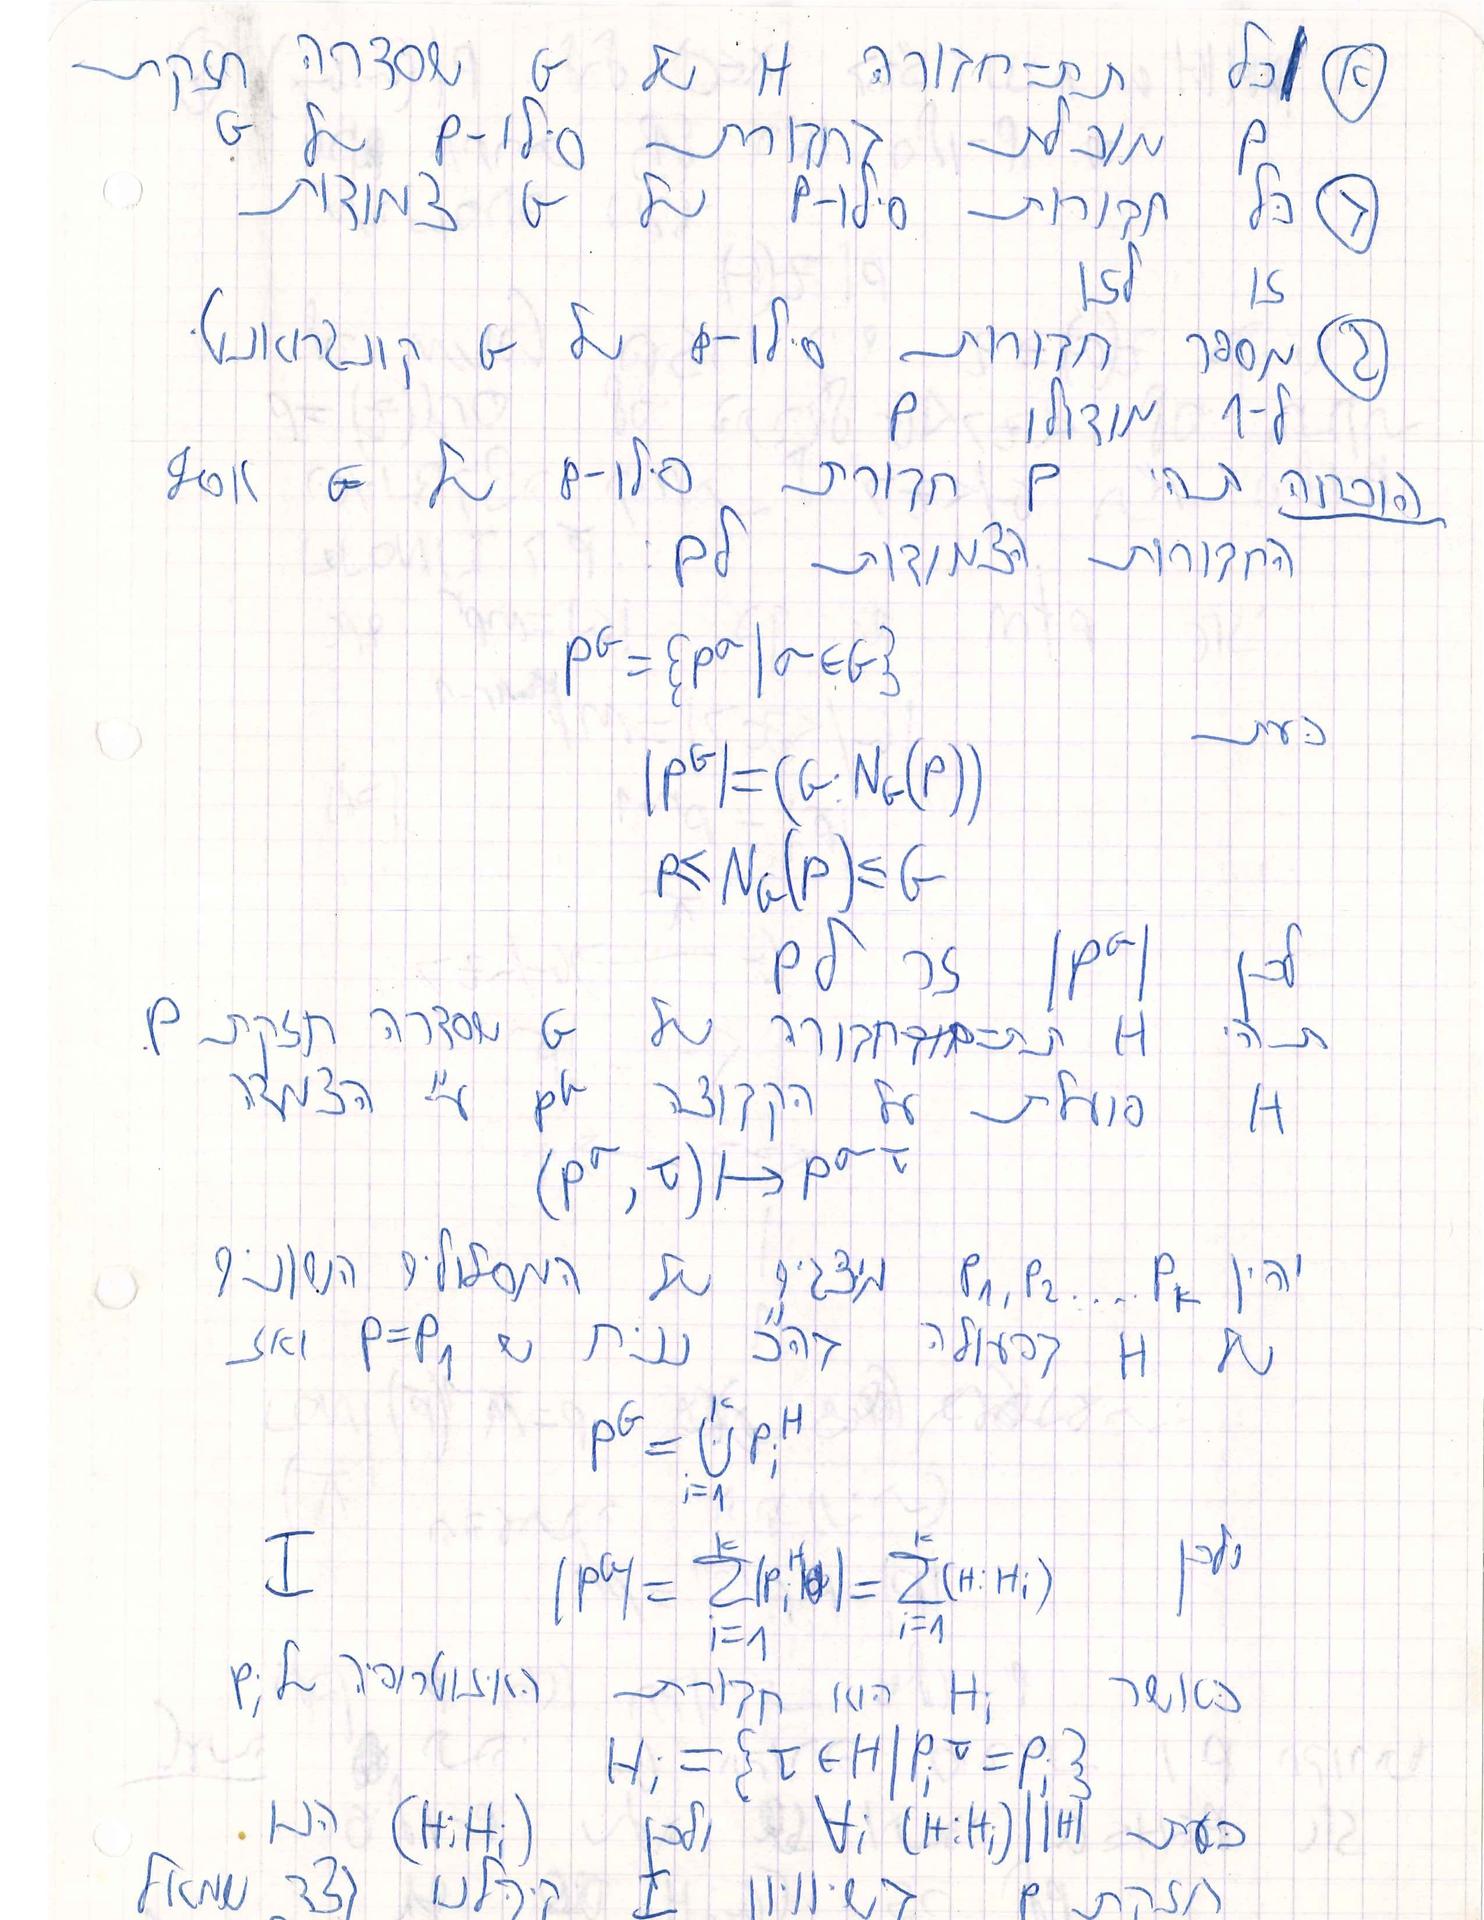 א כל תת-חבורה H של G שסדרה חזקת
p מוכלת בחבורת סילו-p של G
ב כל חבורות סילו-p של G צמודות
זו לזו
ג מספר חבורות סילו-p של G קונגרואנטי
ל-1 מודולו p
הוכחה תהי P חבורת סילו-p של G אוסף
החבורות הצמודות לP:
P^G = {P^σ | σ∈G}
כעת
|P^G| = (G:N_G(P))
P≤N_G(P)≤G
לכן |P^G| זר לp
תהי H תת-חבורה של G שסדרה חזקת p.
H פועלת על הקבוצה P^G ע"י הצמדה
(P^σ, τ) ↦ P^στ
יהיו P_1, P_2 .... P_k מיצגים של המסלולים השונים
של H בפעולה בה"כ נניח ש P=P_1 ואז
P^G = ⋃_{i=1}^k P_i^H
ולכן |P^G| = Σ_{i=1}^k |P_i^H| = Σ_{i=1}^k (H:H_i) I
כאשר H_i היא חבורת האיזוטרופיה של P_i
H_i = {τ∈H | P_i^τ = P_i}
כעת ∀i (H:H_i) | |H| ולכן (H:H_i) הוא
חזקת p בשיוויון I קיבלנו שצד שמאל